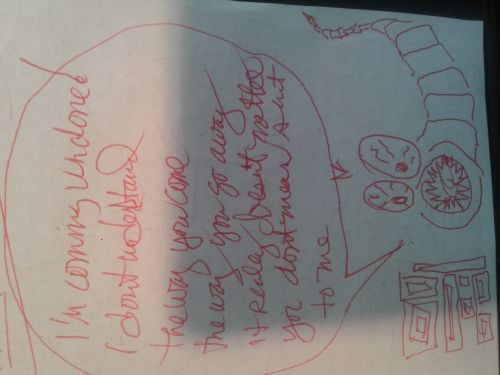 I'm coming undoned
I dont understand
the way you come
the way you go away
it really doesn't matter
you dont mean shit
to me